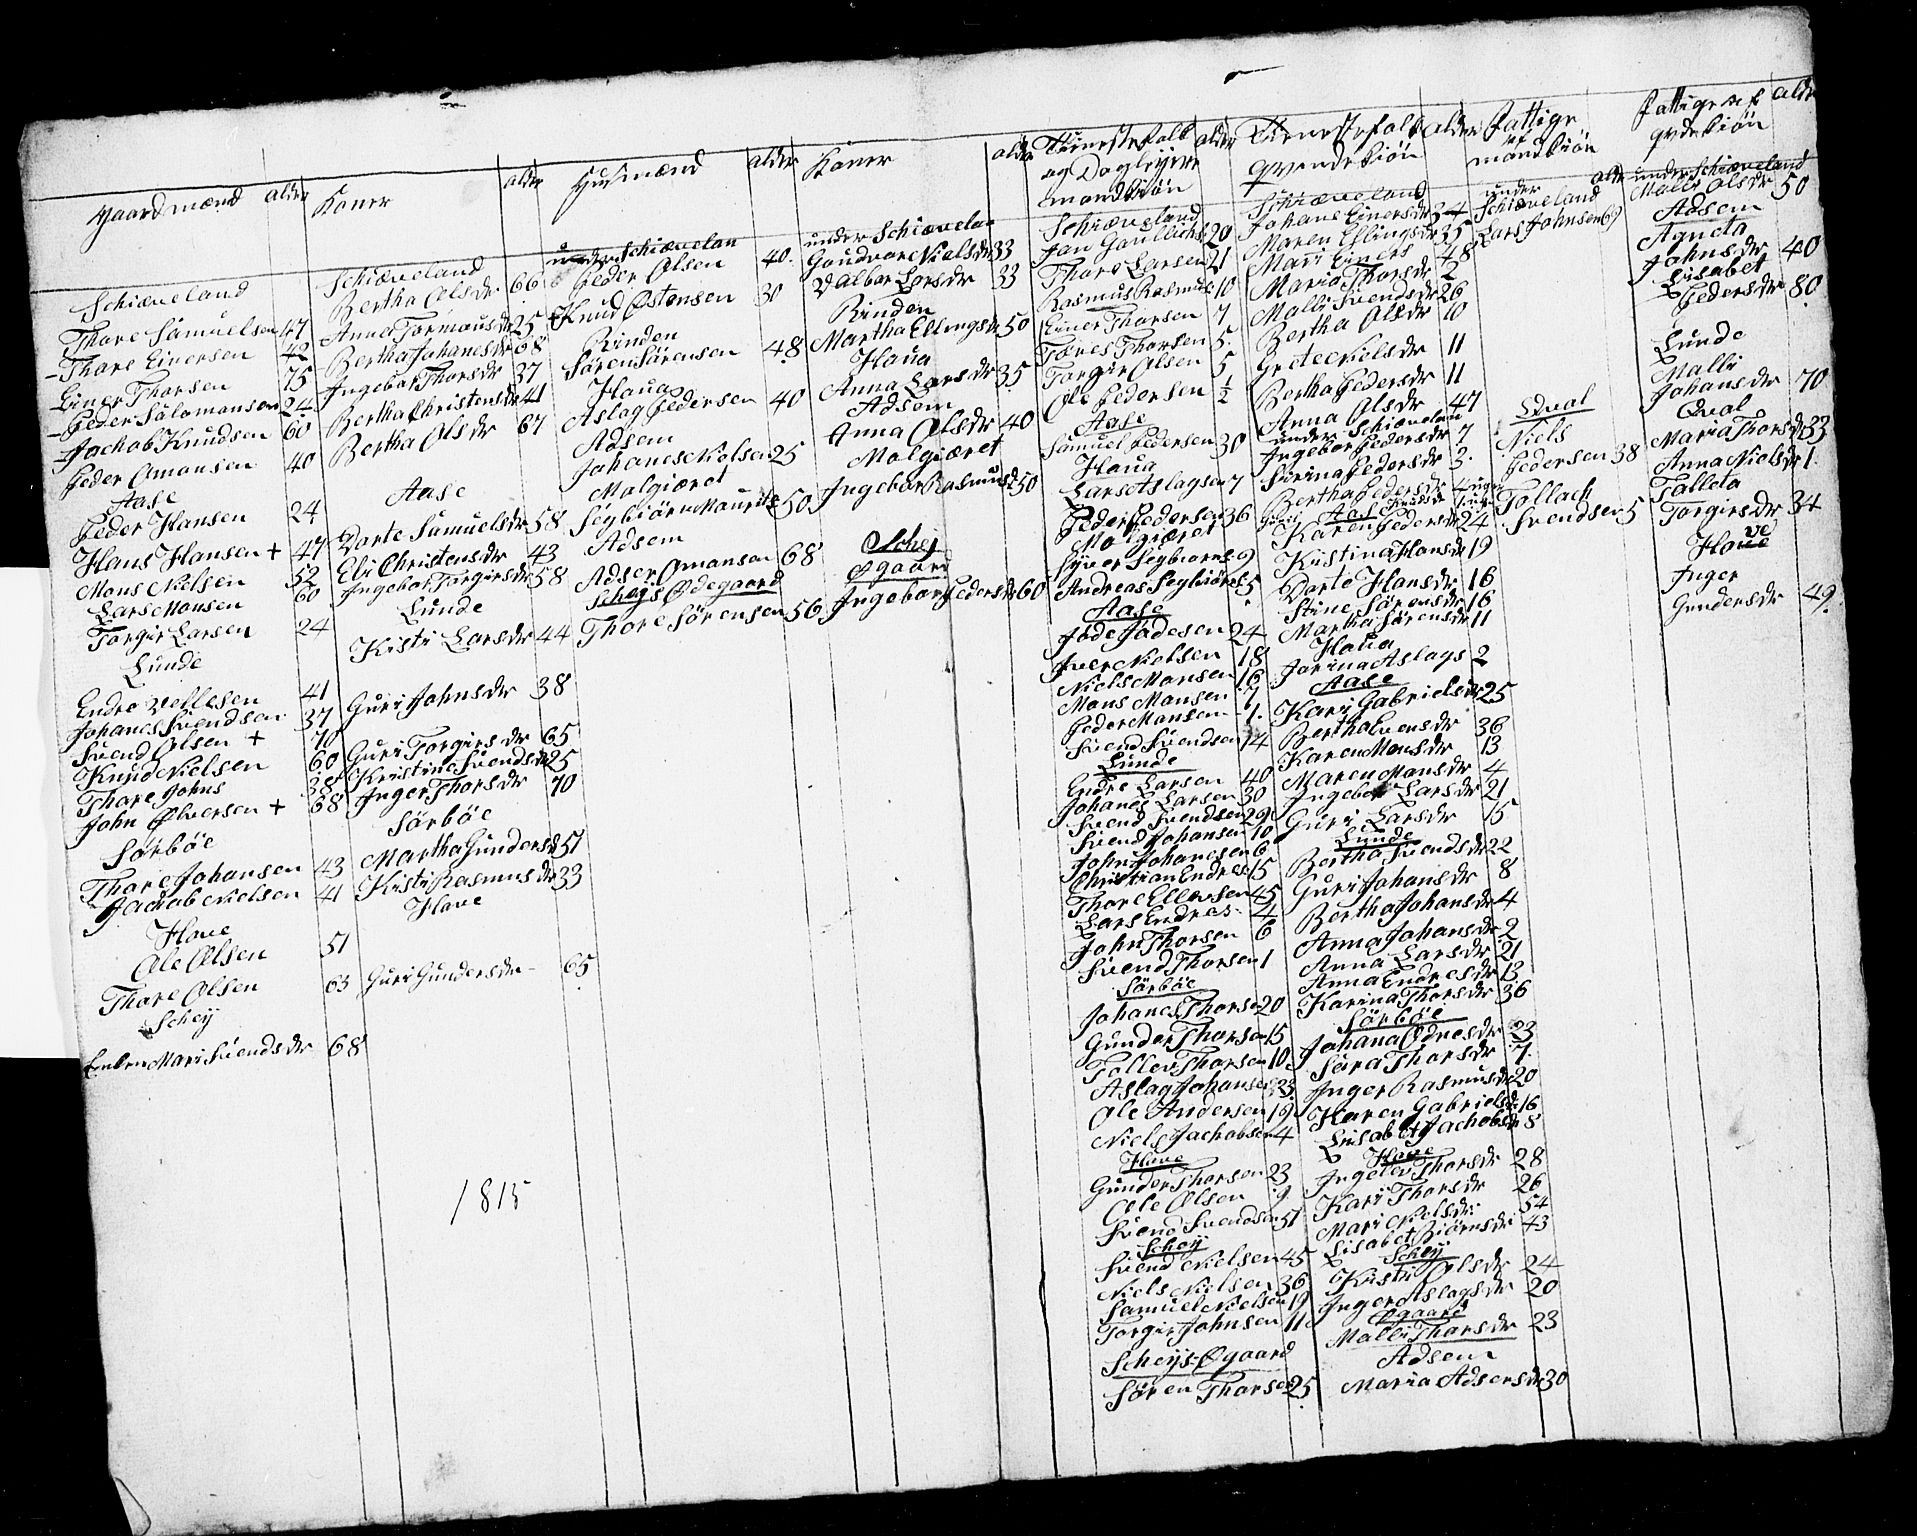 Gaardmænd alder
Schiæveland
Thore Samuelsen 47
Thore Einersen 42
Einer Thorsen 75
Peder Salomonsen 24
Jachob Knudsen 60
Peder Omansen 40
Aase
Peder Hansen 24
Hans Hansen + 47
Mons Nielsen 52
Lars Monsen 60
Torgier Larsen 24
Lunde
Endre 41
Johanes Svendsen 37
Svend Olsen + 70
Knud Nielsen 60
Thore Johns 38
John Elversen + 68
Sørbøe
Thore Johansen 43
Jachob Nielsen 41
Hove
Ole Olsen 51
Thore Olsen 63
Schey
Enken Mari Svendsdr 68
Koner alder
Schiæveland
Bertha Olsdr 66
Anna Tormousdr 25
Bertha Johanesdr 68
Ingebor Thorsdr 37
Bertha Christensdr 41
Bertha Olsdr 67
Aase
Dorte Samuelsdr 58
Eli Christensdr 43
Ingebor Torgirsdr 58
Lunde
Kisti Larsdr 44
Guri Johnsdr 38
Guri Torgirsdr 65
Kristine Svendsdr 25
Inger Thorsdr 70
Sørbøe
Martha Gundersdr 51
Kisti Rasmusdr 33
Hove
Guri Gundersdr 65
Husmænd alder
under Schiævelan
Peder Olsen 40
Knud Østensen 30
Rinden
Søren Sørensen 48
Haua
Aslag Pedersen 40
Adsem
Johanes Nielsen 25
Malgiæret
Seybiørn Mauritz 50
Adsem
Adser Omansen 68
Scheys Ødegaard
Thore Sørensen 56
Koner alder
under Schiævelan
Gaudvor Nielsdr 33
Valbor Larsdr 33
Rinden
Martha Ellingsdr 50
Haua
Anna Larsdr 35
Adsem
Anna Olsdr 40
Malgiæret
Ingebor Rasmusdr 50
Schey
Øgaard
Ingebor Pedersdr 60
Tienestefolk og Dagleyere mandkiøn alder
Schiæveland
Jan Gaulichs 20
Thore Larsen 21
Rasmus Rasmus 10
Einer Thorsen 7
Tøres Thorsen 5
Torgir Olsen 5
Ole Pedersen ½
Aase
Samuel Pedersen 30
Haua
Lars Aslagsen 7
Peder Pedersen 36
Malgiæret
Syver Seybiørns 9
Andreas Seybiørns 5
Aase
Jode Jodesen 24
Iver Nielsen 18
Niels Monsen 16
Mons Monsen 7
Peder Monsen 1
Svend Svendsen 14
Lunde
Endre Larsen 40
Johanes Larsen 30
Svend Svendsen 29
Svend Johansen 10
John Johanesen 6
Christian Endres 15
Thore Ellevsen 45
Lars Endres 4
John Thorsen 6
Svend Thorsen 1
Sørbøe
Johanes Thorsen 20
Gunder Thorsen 15
Tollev Thorsen 10
Aslag Johansen 23
Ole Andersen 19
Niels Jachobsen 4
Hove
Gunder Thorsen 23
Ole Olsen 9
Svend Svendsen 51
Schey
Svend Nielsen 45
Niels Nielsen 36
Samuel Nielsen 19
Torgir Johnsen 11
Scheys Øgaard
Søren Thorsen 25
Tienestefolk qvendekiøn alder
Schiæveland
Johane Einersdr 34
Maren Eslingsdr 35
Mari Einers 48
Maria Thorsdr 2
Malli Svendsdr 26
Bertha Olsdr 10
Grete Nielsdr 11
Bertha Pedersdr 11
Anna Olsdr 47
under Schiævelan
Ingebor Pedersdr 7
Sirina Pedersdr 3
Bertha Pedersdr
Aase
Karen Pedersdr 24
Kristina Hansdr 19
Dorte Hansdr 16
Stine Sørensdr 16
Martha Sørensdr 11
Haua
Jorina Aslags 2
Aase
Kari Gabrielsdr 25
Bertha Evensdr 36
Karen Monsdr 13
Maren Monsdr 4
Ingebor Larsdr 21
Guri Larsdr 15
Lunde
Bertha Svendsdr 22
Guri Johansdr 8
Bertha Johansdr 4
Anna Johansdr 2
Anna Larsdr 21
Anna Endresdr 13
Karina Thorsdr 36
Sørbøe
Johana Odnesdr 23
Sara Thorsdr 7
Inger Rasmusdr 20
Karen Gabrielsdr 16
Lisabet Jachobsdr 8
Hove
Ingelev Thorsdr 28
Kari Thorsdr 26
Mari Nielsdr 54
Lisabet Biørnsdr 43
Schey
Kisti Olsdr 24
Inger Aslagsdr 20
Øgaard
Malli Thorsdr 23
Adsem
Maria Adsersdr 30
Fattige af mandkiøn alder
under Schiæveland
Lars Johnsen 69
Qval
Niels Pedersen 38
Tollach Svendsen 5
Fattige af qvdekiøn alder
under Schiæveland
Malli Olsdr 50
Adsem
Agneta Johnsdr 40
Lisabet Pedersdr 80
Lunde
Malli Johansdr 70
Qval
Maria Thorsdr 33
Anna Nielsdr 1
Talleta Torgirsdr 34
Hove
Inger Gundersdr 49
1815